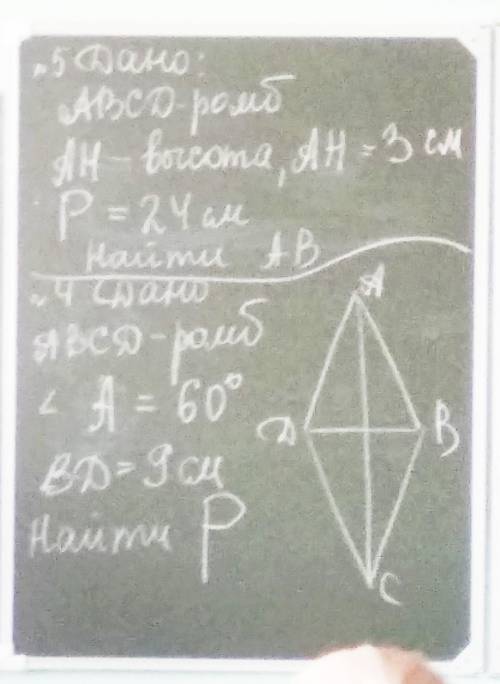 №5 Дано:
ABCD - ромб
AH - высота, AH = 3 см
P = 24 см
Найти AB
№4 Дано
ABCD - ромб
∠ A = 60°
BD = 9 см
Найти P
A
D
B
C